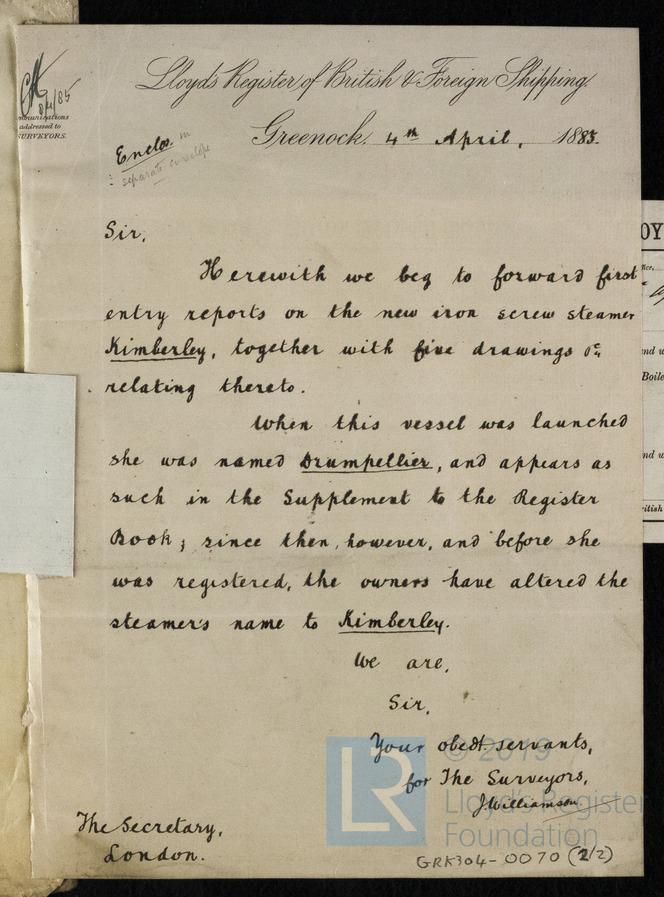 Lloyd's Register of British & Foreign Shipping,
8/4/85
addressed to
SURVEYORS.
Greenock, 4th April, 1885.
Enclos. in
separate envelope
Sir,
Herewith we beg to forward first
entry reports on the new iron screw steamer
Kimberley, together with five drawings &c
relating thereto.
When this vessel was launched
she was named Drumpellier, and appears as
such in the Supplement to the Register
Book; since then, however, and before she
was registered, the owners have altered the
steamer's name to Kimberley.
We are,
Sir,
Your obedt. servants,
for The Surveyors,
J Williamson
The Secretary,
London.
GRK304-0070 (2/2)
© 2019
LR
Lloyd's Register
Foundation